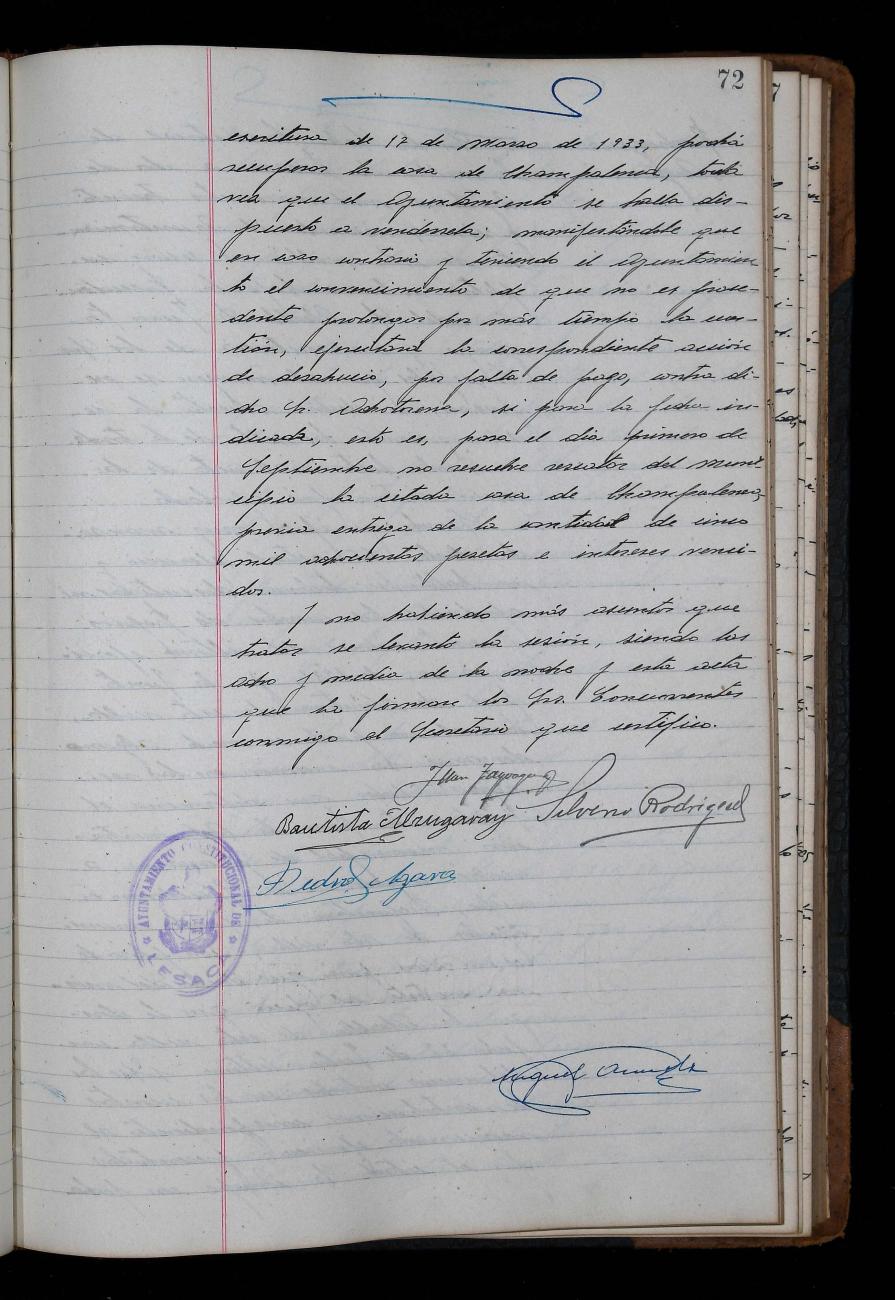 72
escritura de 17 de Marzo de 1933, podrá
recuperar la casa de Champalenea, toda
vez que el Ayuntamiento se halla dis-
puesto a vendersela; manifestándole que
en caso contrario y teniendo el Ayuntamien
to el convencimiento de que no es proce-
dente prolongar por más tiempo la cues-
tión, ejercitará la correspondiente acción
de desahucio, por falta de pago, contra di-
cho Sr. Ochotorena, si para la fecha in-
dicada, esto es, para el dia primero de
Septiembre no resuelve rescatar del muni
cipio la citada casa de Champalenea,
previa entrega de la cantidad de cinco
mil ochocientas pesetas e intereses venci-
dos.
Y no habiendo más asuntos que
tratar se levantó la sesión, siendo las
ocho y media de la noche y esta acta
que la firman los Srs. Concurrentes
conmigo el Secretario que certifico.
Juan
Bautista Silverio Rodriguez
Pedro
AYUNTAMIENTO CONSTITUCIONAL DE
LESACA
Miguel